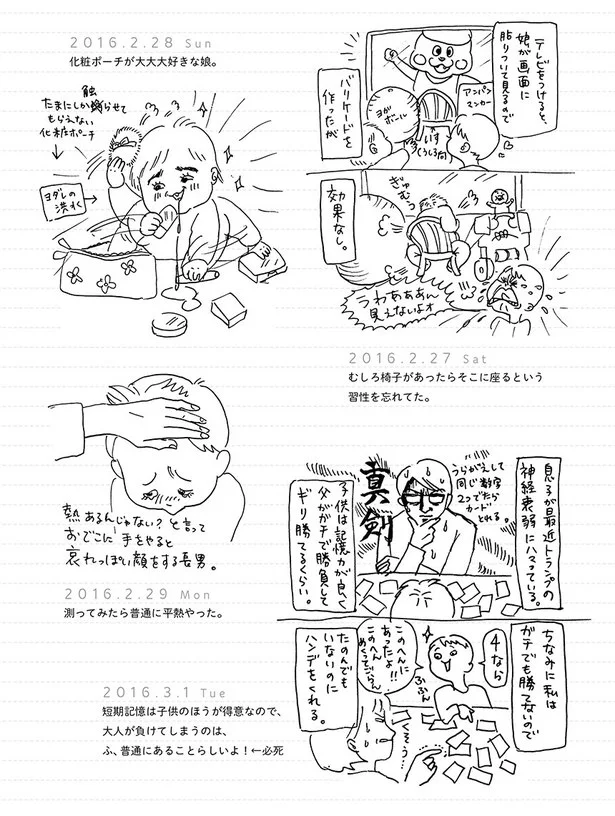 テレビをつけると、
娘が画面に
貼りついて見るので
バリケードを
作ったが
アンパン
マンカー
ヨガ
ボール
いす
うしろ向
効果なし。
ぎゅ
むっ
うわあああん
見えないよォ
2016.2.27 Sat
むしろ椅子があったらそこに座るという
習性を忘れてた。
2016.2.28 Sun
化粧ポーチが大大大好きな娘。
たまにしか触らせて
もらえない
化粧ポーチ
ヨダレの
洪水
熱あるんじゃない?と言って
おでこに手をやると
哀れっぽい顔をする長男。
2016.2.29 Mon
測ってみたら普通に平熱やった。
息子が最近トランプの
神経衰弱にハマっている。
うらがえして
同じ数字
2つでたら
カード
とれる。
真剣
子供は記憶力が良く
父がガチで勝負して
ギリ勝てるくらい。
ちなみに私は
ガチでも勝てないので
4なら
このへんに
あったよ!!
このへん
めくってごらん
ふふん
たのんでも
いないのに
ハンデをくれる。
くそう…
2016.3.1 Tue
短期記憶は子供のほうが得意なので、
大人が負けてしまうのは、
ふ、普通にあることらしいよ!←必死